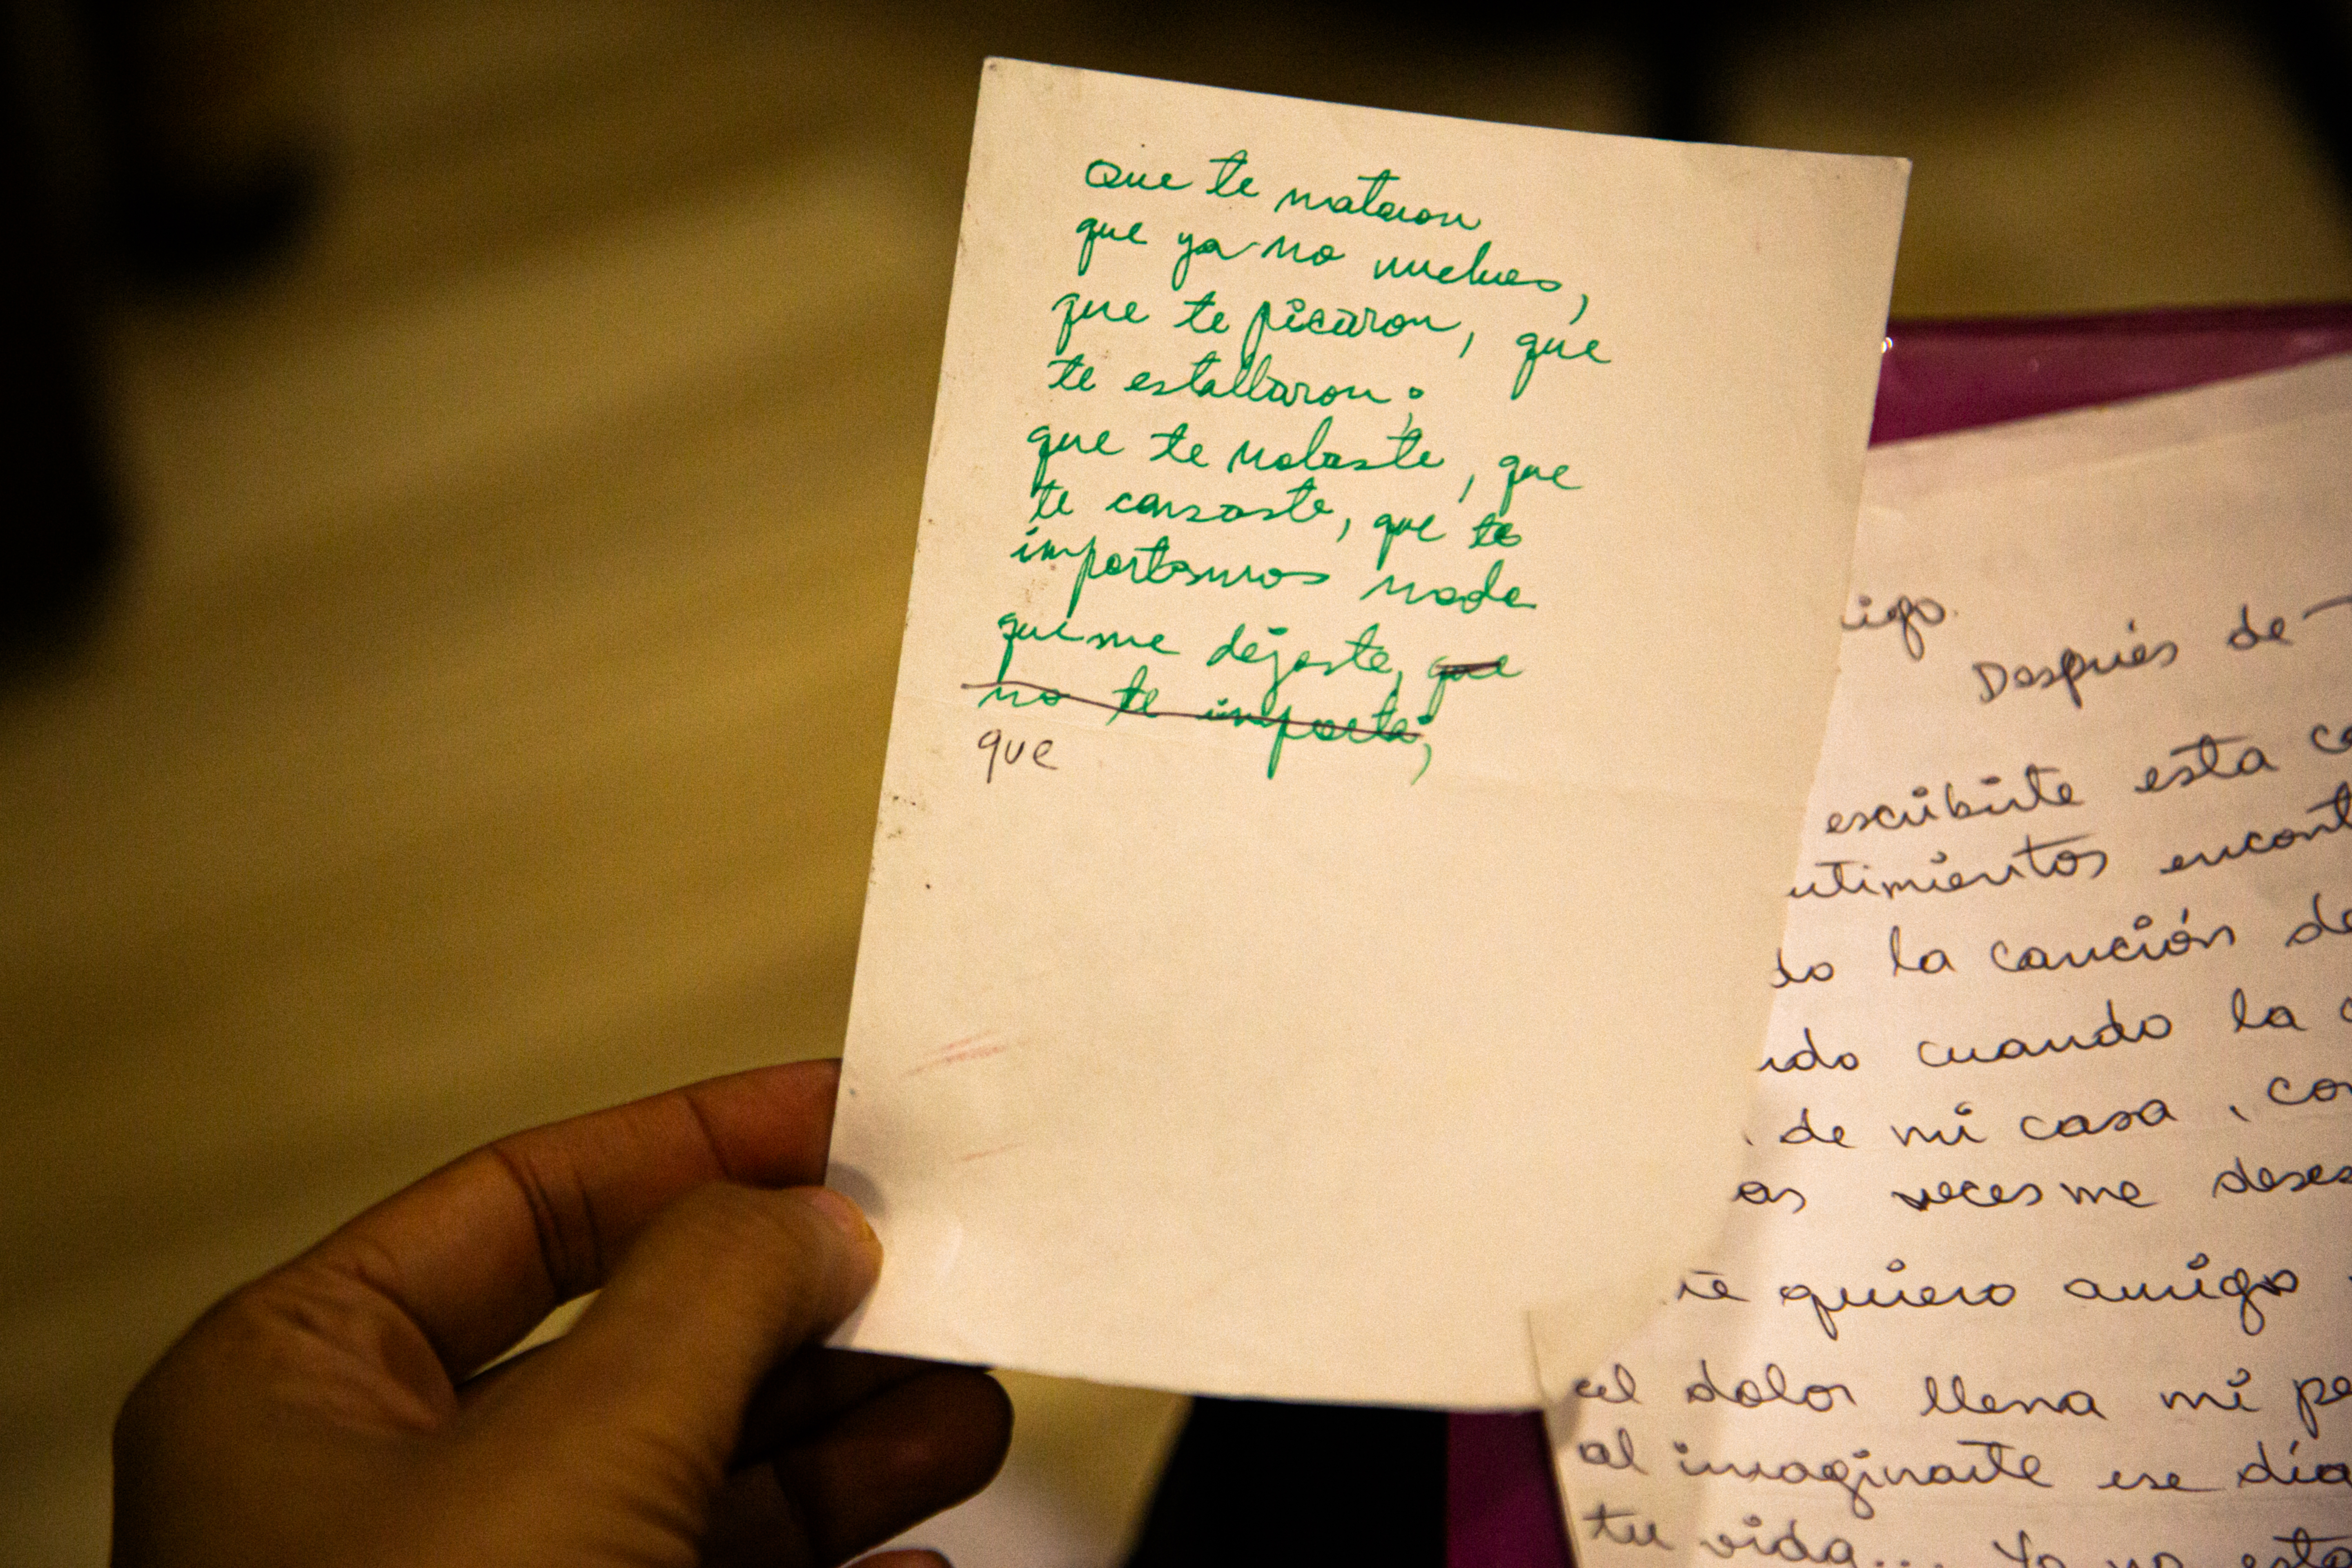 Que te mataron
que ya no vuelves,
que te picaron, que
te estallaron;
que te volaste, que
te cansaste, que te
importamos nada
que me dejaste, que
no te importa;
que
igo.
Después de
escribirte esta
ntimientos encont
do la canción de
ndo cuando la
de mi casa, con
as veces me deses
te quiero amigo
el dolor llena mi pe
al imaginarte ese día
tu vida... Ya no esta